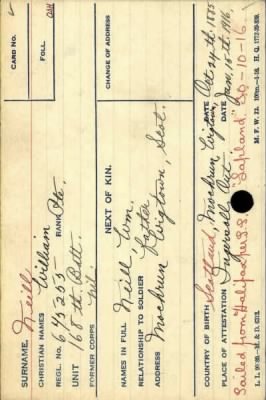 SURNAME. Neill
CARD NO.
CHRISTIAN NAMES William
FOLL.
REGL. NO. 675255 RANK Pte.
UNIT 168th Batt.
FORMER CORPS Nil.
NEXT OF KIN.
CHANGE OF ADDRESS
NAMES IN FULL Neill, Wm.
RELATIONSHIP TO SOLDIER Father
ADDRESS Mochrum, Wigtown, Scot.
COUNTRY OF BIRTH Scotland, Mochrum, Wigtown, DATE Oct 24th 1885
PLACE OF ATTESTATION Ingersoll, Ont. DATE Jan. 18th 1916.
Sailed from Halifax per S.S. "Lapland" 30-10-16
M. F. W. D.